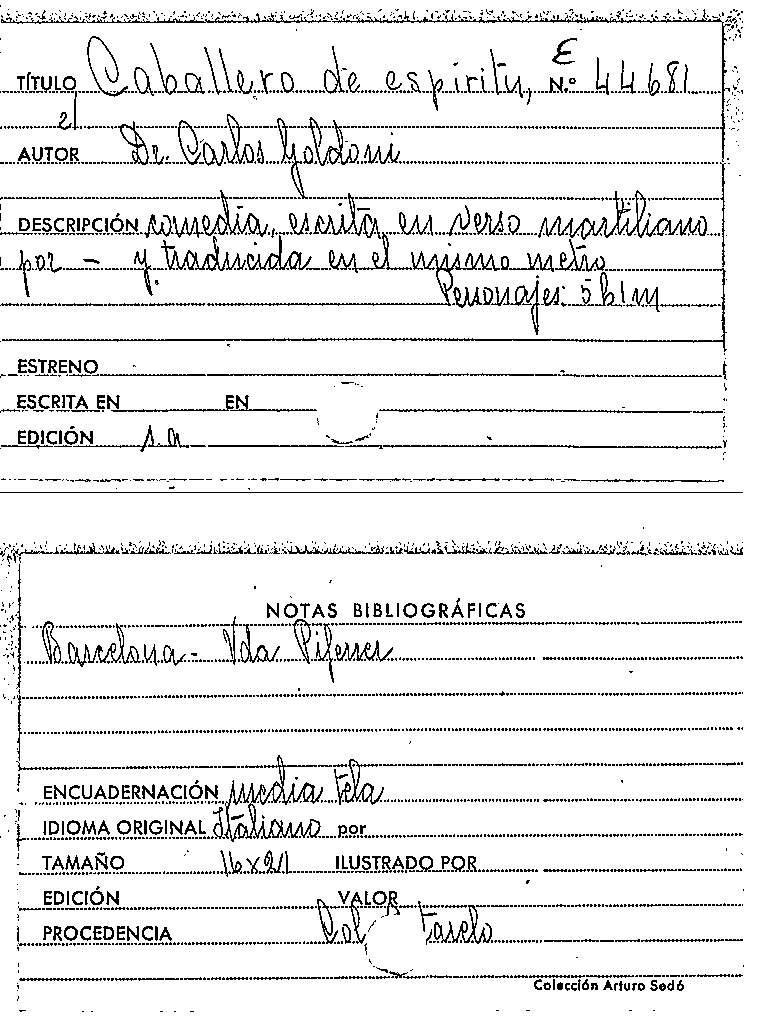 E
TÍTULO Caballero de espiritu, N.º 44681
el
AUTOR Dr. Carlos Goldoni
DESCRIPCIÓN comedia, escrita en verso martiliano
por - y traducida en el mismo metro
Personajes: 5 h 1 m
ESTRENO
ESCRITA EN EN
EDICIÓN s.a
NOTAS BIBLIOGRÁFICAS
Barcelona - Vda Piferrer
ENCUADERNACIÓN media tela
IDIOMA ORIGINAL Italiano por
TAMAÑO 16x21 ILUSTRADO POR
EDICIÓN VALOR
PROCEDENCIA Col
Colección Arturo Sedó